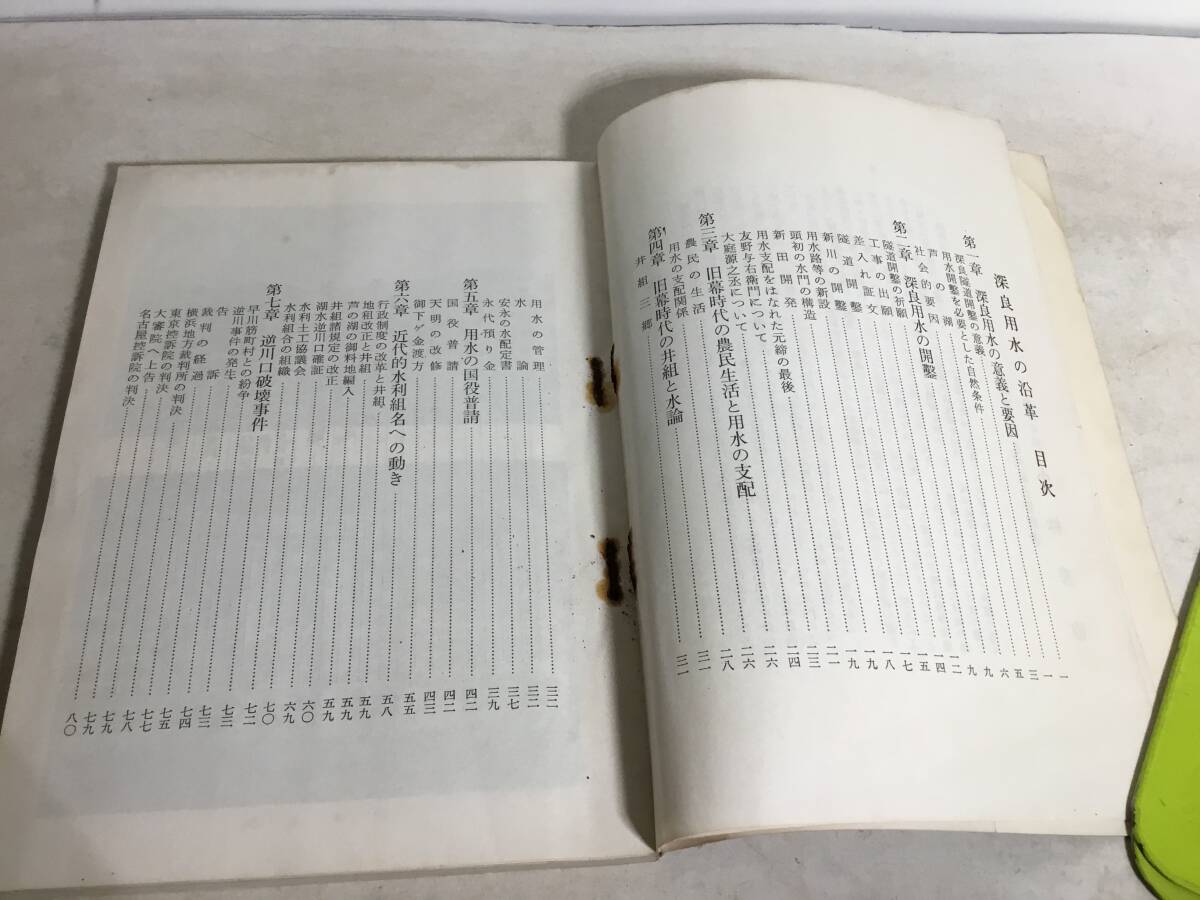 深良用水の沿革 目次
第一章 深良用水の意義と要因……一
深良隧道開鑿の意義……一
用水開鑿を必要とした自然条件……三
芦の湖……五
社会的要因……六
第二章 深良用水の開鑿……九
隧道開鑿の祈願……九
工事の出願……九
差入れ証文……一二
隧道開鑿……一四
新川の開鑿……一五
用水路等の新設……一七
頭初の水門の構造……一九
新田開発……一九
用水支配をはなれた元締の最後……二一
友野与右衛門について……二三
大庭源之丞について……二四
第三章 旧幕時代の農民生活と用水の支配……二六
農民の生活……二六
用水の支配関係……二八
第四章 旧幕時代の井組と水論……三一
井組三郷……三一
用水の管理……三二
水論……三二
安永の水配定書……三七
永代預り金……三九
第五章 用水の国役普請……四二
国役普請……四二
天明の改修……四三
御下ゲ金渡方……五五
第六章 近代的水利組名への動き……五八
行政制度の改革と井組……五九
地租改正と井組……五九
芦の湖の御料地編入……五九
井組請規定の改正……六〇
湖水逆川口確証……六九
水利土工協議会……七〇
水利組合の組織……七二
第七章 逆川口破壊事件……七三
早川筋町村との紛争……七三
逆川事件の発生……七四
告訴……七五
裁判の経過……七七
横浜地方裁判所の判決……七八
東京控訴院の判決……七九
大審院へ上告……七九
名古屋控訴院の判決……八〇